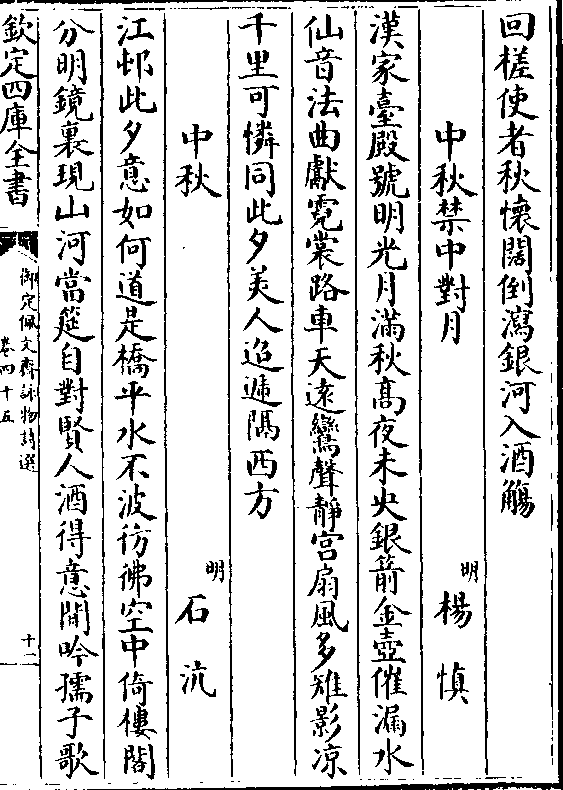 回槎使者秋懷闊倒瀉銀河入酒觴
中秋禁中對月
明
楊慎
漢家臺殿號明光月滿秋髙夜未央銀箭金壺催漏水
仙音法曲獻霓裳路車天遠鸞聲靜宫扇風多雉影凉
千里可憐同此夕美人迢遞隔西方
中秋
明
石沆
江邨此夕意如何道是橋平水不波彷彿空中倚樓閣
分明鏡裏現山河當筵自對賢人酒得意閒吟孺子歌
欽定四庫全書
御定佩文齋詠物詩選
卷四十五
十二